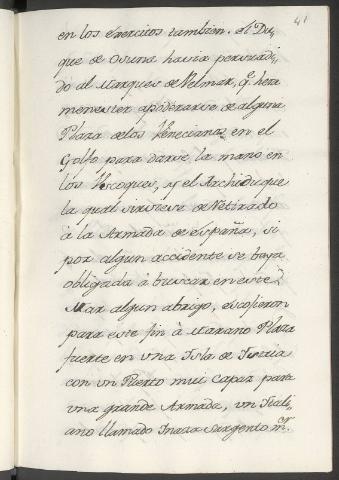 41
en los exercitos tambien. el Du,,
que de Osuna havia persuadi,,
do al Marques de Velmar, q.e hera
menester apoderarse de alguna
Plaza de los Venecianos en el
Golfo para darse la mano en
los Vscoques, y el Archiduque
la qual sirviese de Retirado
á la Armada de españa, si
por algun accidente se baya
obligada à buscar en este
Mar algun abrigo, escofieron
para este fin à Marano Plaza
fuerte en vna Isla de Istria
con un Puerto mui capaz para
vna grande Armada, vn Itali,,
ano llamado Sargento m.or